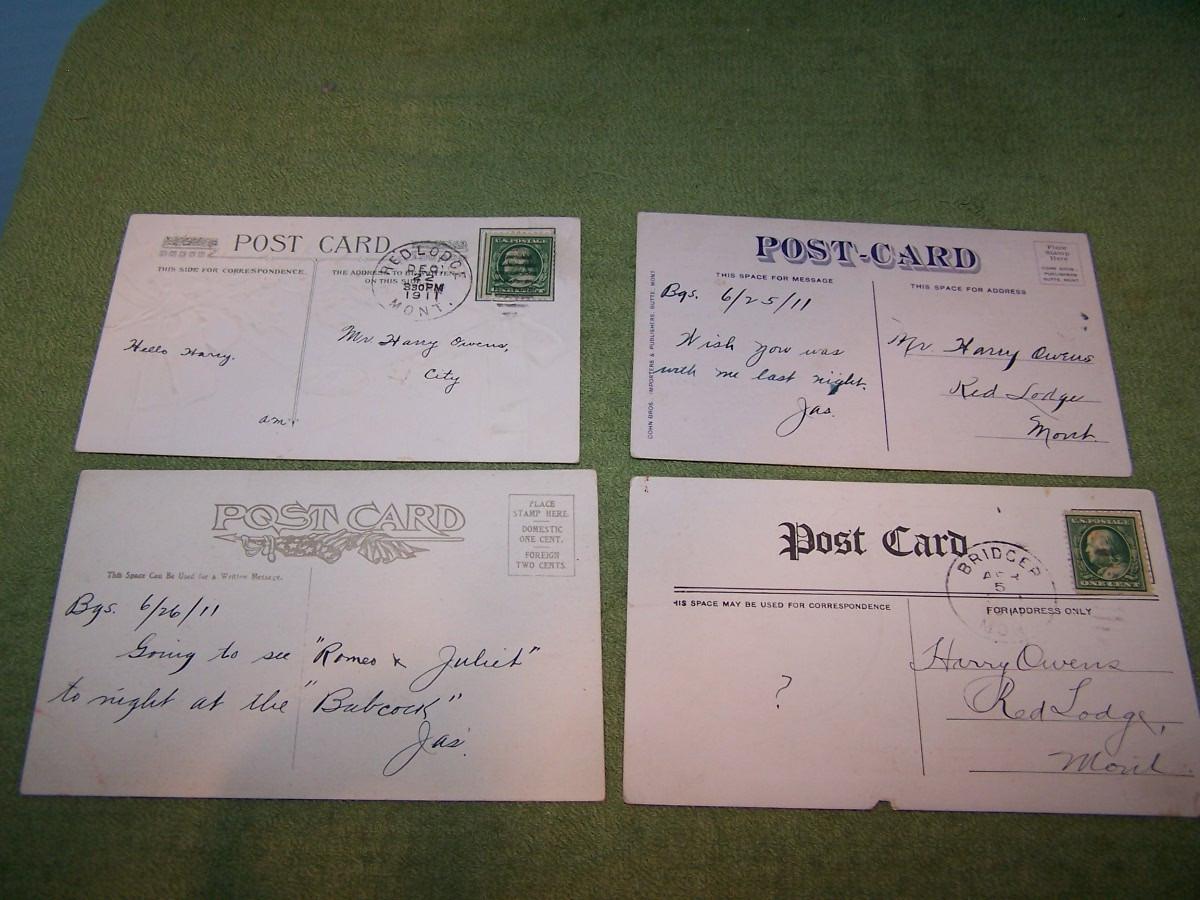 POST CARD
THIS SIDE FOR CORRESPONDENCE.
THE ADDRESS TO BE WRITTEN
ON THIS SIDE
RED LODGE
DEC
2
830PM
1911
MONT.
U.S. POSTAGE
Hello Harry.
am
Mr. Harry Owens,
City
POST-CARD
Place
Stamp
Here
COHN BROS.
PUBLISHERS
BUTTE, MONT
THIS SPACE FOR MESSAGE
THIS SPACE FOR ADDRESS
COHN BROS. IMPORTERS & PUBLISHERS, BUTTE, MONT
Bgs. 6/25/11
Wish you was
with me last night.
Jas.
Mr. Harry Owens
Red Lodge
Mont.
POST CARD
PLACE
STAMP HERE.
DOMESTIC
ONE CENT.
FOREIGN
TWO CENTS.
This Space Can Be Used for a Written Message.
Bgs. 6/26/11
Going to see "Romeo & Juliet"
to night at the "Babcock"
Jas.
Post Card
BRIDGER
5
U.S. POSTAGE
ONE CENT
HIS SPACE MAY BE USED FOR CORRESPONDENCE
FOR ADDRESS ONLY
?
Harry Owens
Red Lodge,
Mont.